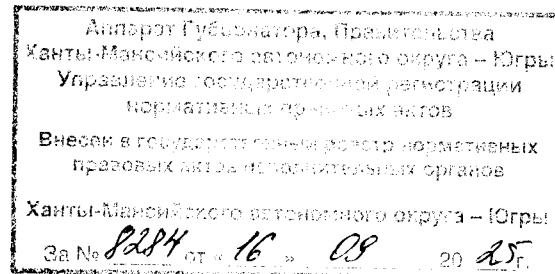 Аппарат Губернатора, Правительства
Ханты-Мансийского автономного округа – Югры
Управление государственной регистрации
нормативных правовых актов
Внесен в государственный реестр нормативных
правовых актов исполнительных органов
Ханты-Мансийского автономного округа – Югры
За № 8284 от « 16 » 09 20 25г.